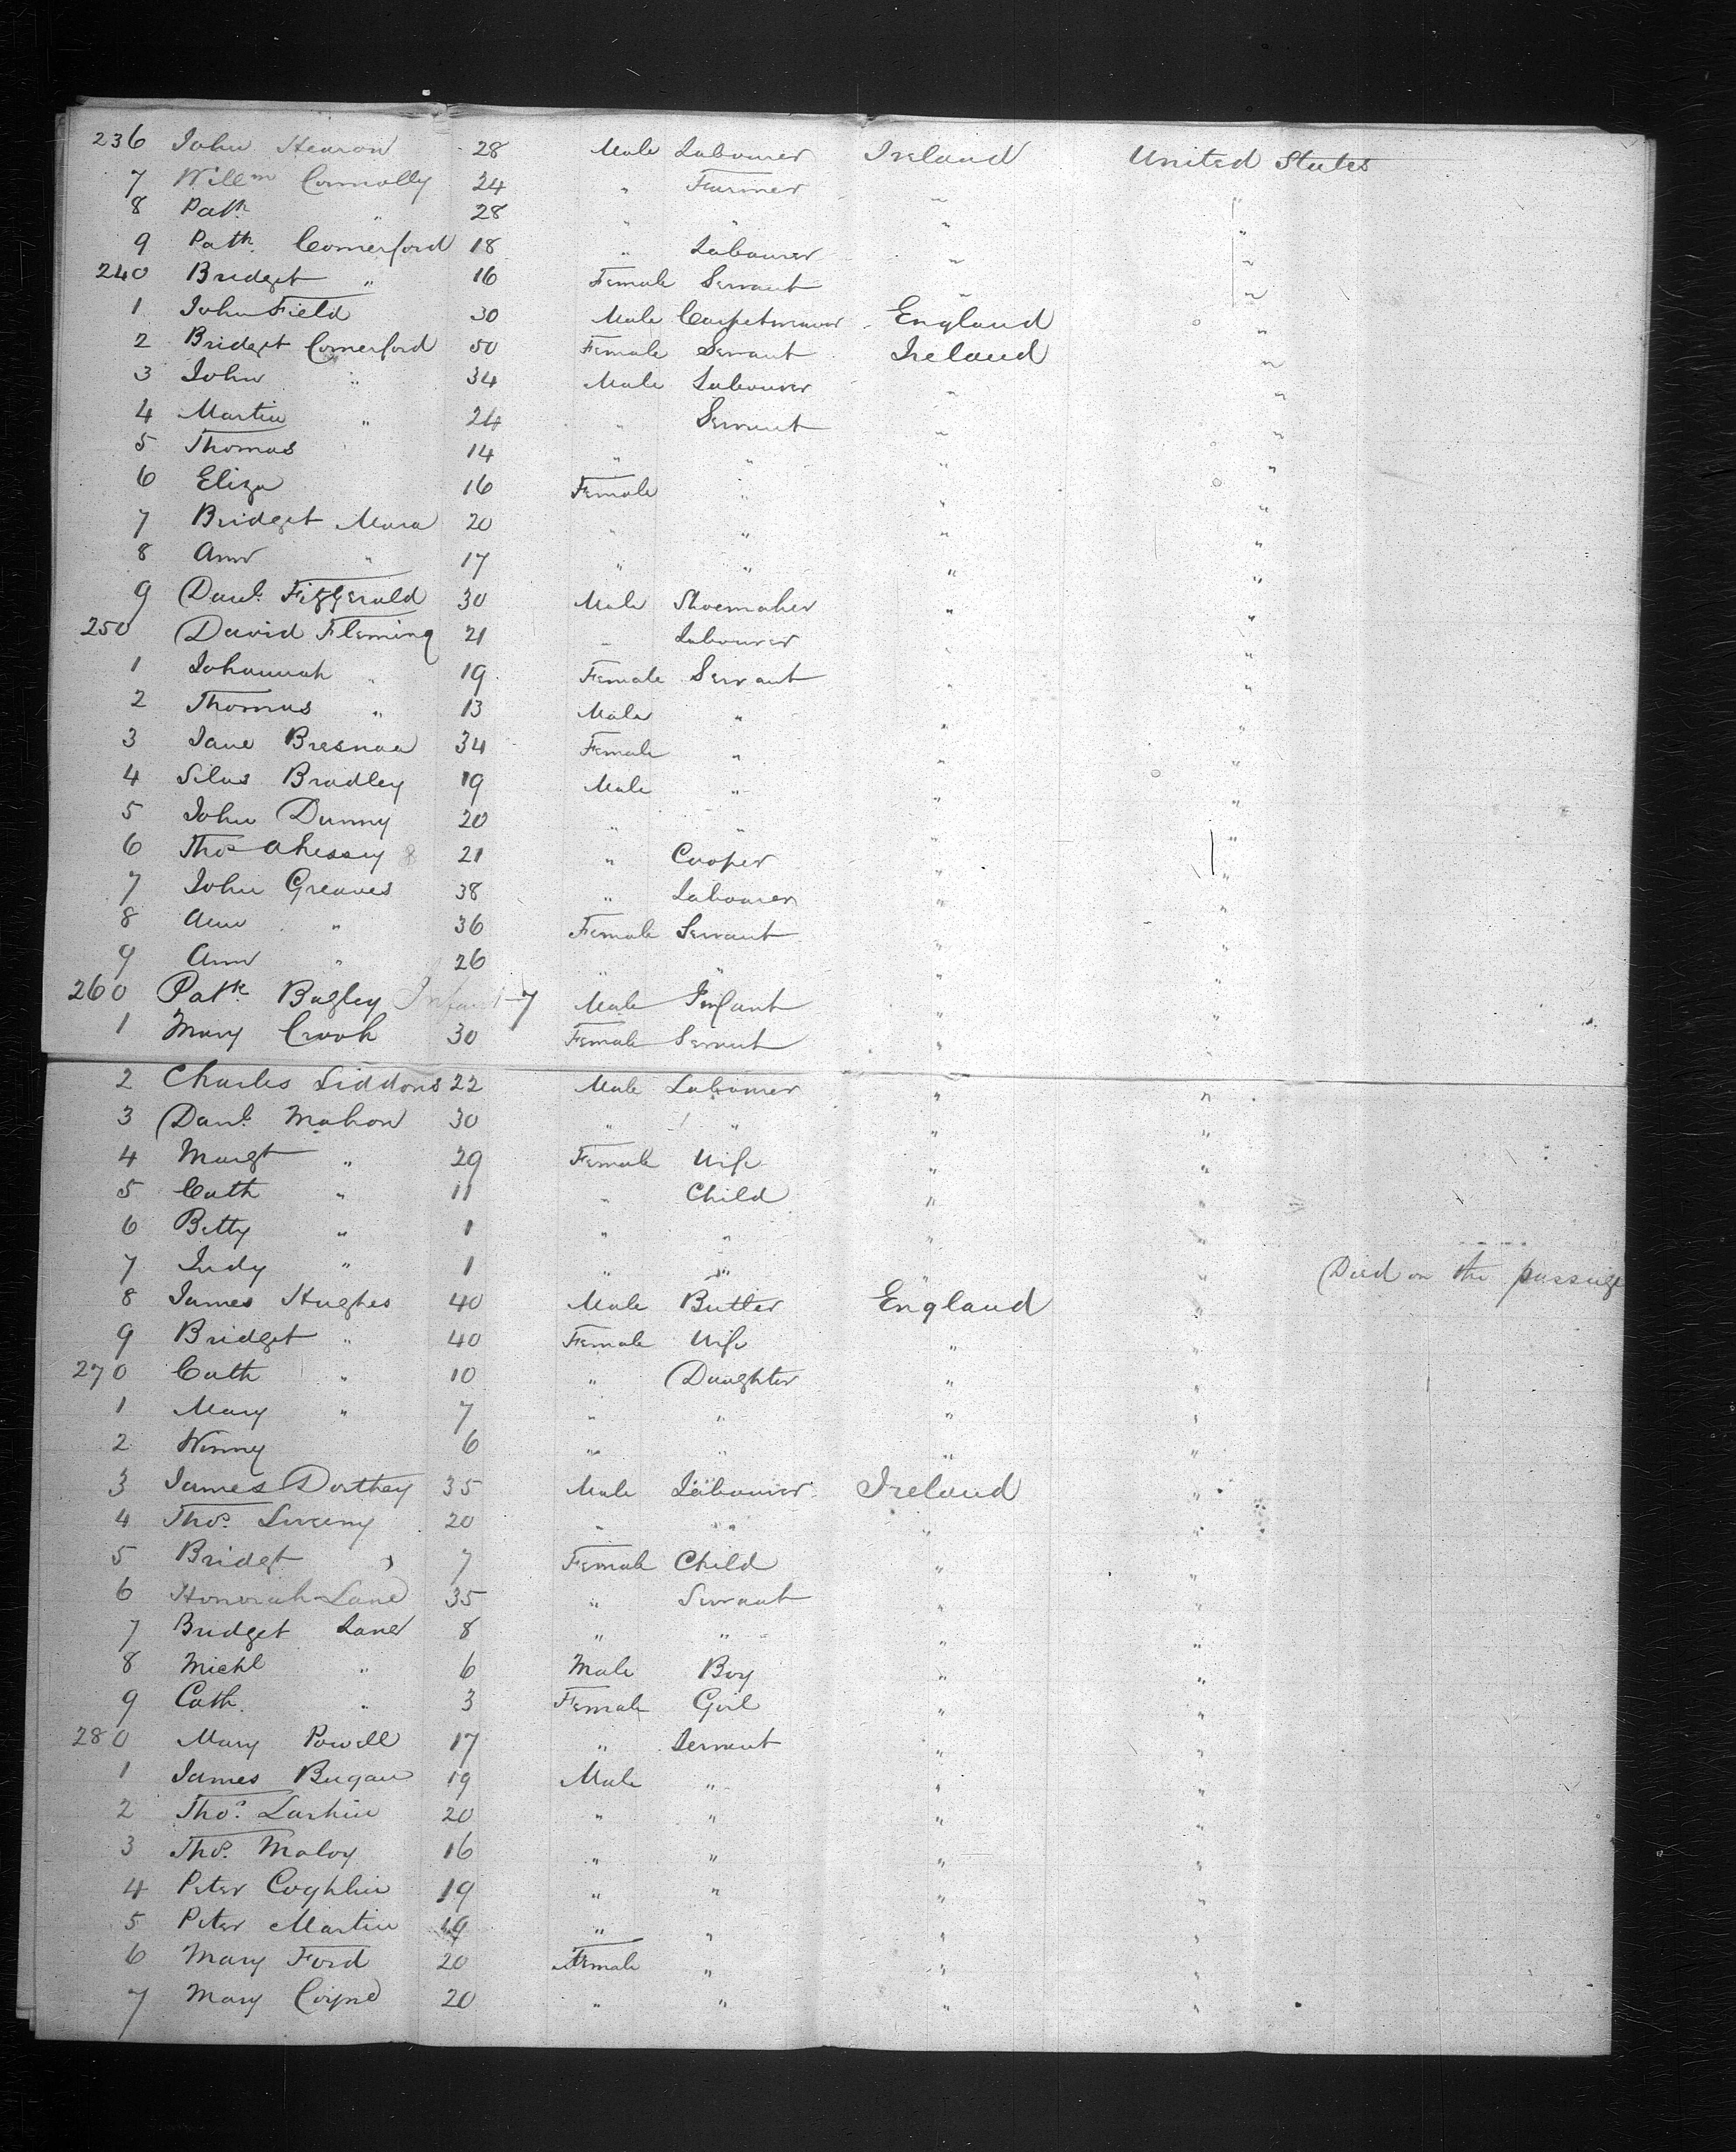 236 John Hearon 28 Male Labourer Ireland United States
7 Willm Connolly 24 " Farmer " "
8 Patk " 28 " " " "
9 Patk Comerford 18 " Labourer " "
240 Bridget " 16 Female Servant " "
1 John Field 30 Male England "
2 Bridget Comerford 50 Female Servant Ireland "
3 John " 34 Male Labourer " "
4 Martin " 24 " Servant " "
5 Thomas 14 " " " "
6 Eliza 16 Female " " "
7 Bridget Mara 20 " " " "
8 Ann " 17 " " " "
9 Danl. Fitzgerald 30 Male Shoemaker " "
250 David Fleming 21 " Labourer " "
1 Johannah " 19 Female Servant " "
2 Thomas " 13 Male " " "
3 Jane Bresnaa 34 Female " " "
4 Silas Bradley 19 Male " " "
5 John Dunny 20 " " " "
6 Thos Ahessy 21 " Cooper " "
7 John Greaves 38 " Labourer " "
8 Ann " 36 Female Servant " "
9 Ann " 26 " " " "
260 Patk Bagley Infant 7 Male Infant " "
1 Mary Crook 30 Female Servant " "
2 Charles Siddons 22 Male Labourer " "
3 Danl. Mahon 30 " " " "
4 Margt " 29 Female Wife " "
5 Cath " 11 " Child " "
6 Betty " 1 " " " "
7 Judy " 1 " " " " Died on the passage
8 James Hughes 40 Male Butler England "
9 Bridget " 40 Female Wife " "
270 Cath " 10 " Daughter " "
1 Mary " 7 " " " "
2 Winny 6 " " " "
3 James Dorthey 35 Male Labourer Ireland "
4 Thos. 20 " " " "
5 Bridgt " 7 Female Child " "
6 Honorah Lane 35 " Servant " "
7 Bridget Lane 8 " " " "
8 Michl " 6 Male Boy " "
9 Cath. " 3 Female Girl " "
280 Mary Powell 17 " Servant " "
1 James Bugan 19 Male " " "
2 Thos. Larkin 20 " " " "
3 Thos. Maloy 16 " " " "
4 Peter Coghlin 19 " " " "
5 Peter Martin 19 " " " "
6 Mary Ford 20 Female " " "
7 Mary Coyne 20 " " " "